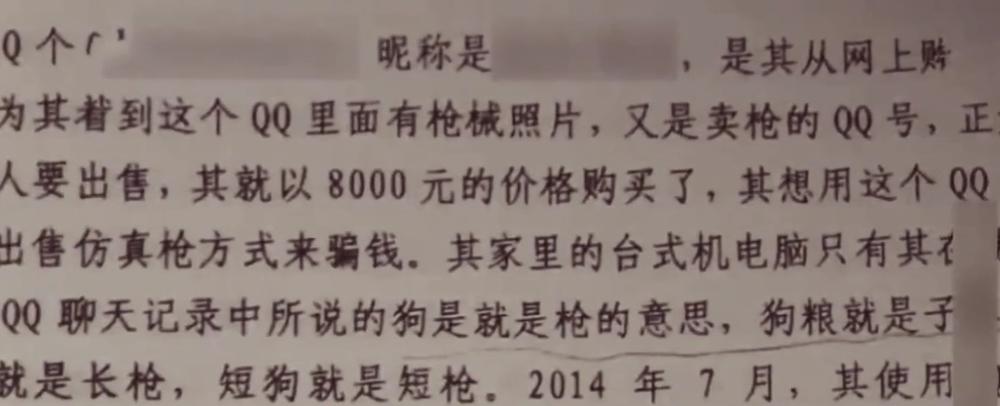 Q个 昵称是 ，是其从网上购
为其看到这个QQ里面有枪械照片，又是卖枪的QQ号，正
人要出售，其就以8000元的价格购买了，其想用这个QQ
出售仿真枪方式来骗钱。其家里的台式机电脑只有其在
QQ聊天记录中所说的狗是就是枪的意思，狗粮就是子
就是长枪，短狗就是短枪。2014年7月，其使用